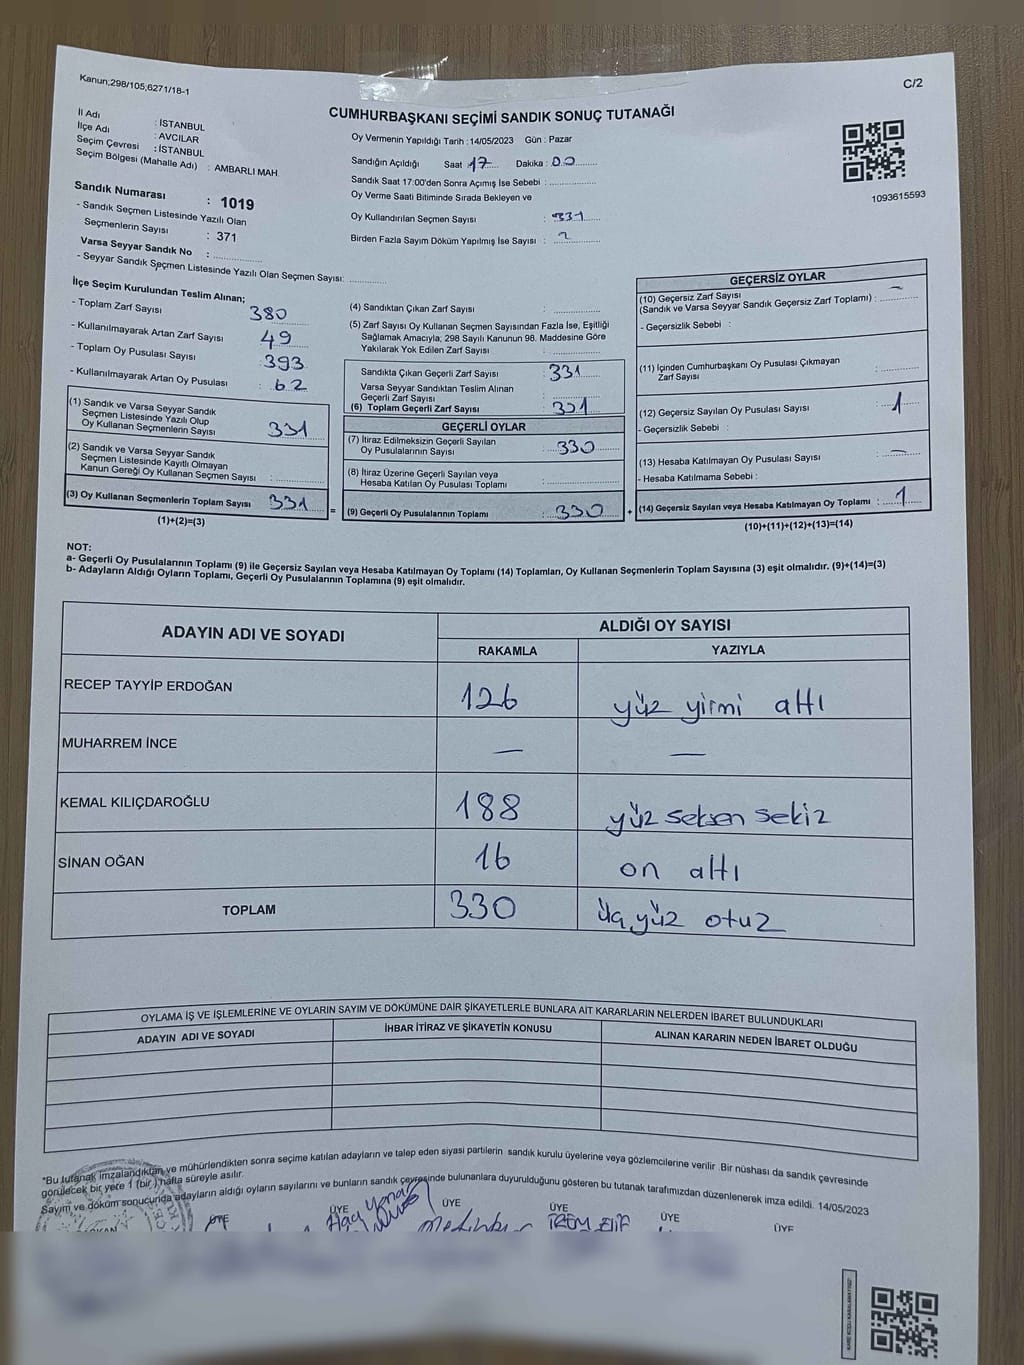 Kanun;298/105;6271/18-1
C/2
CUMHURBAŞKANI SEÇİMİ SANDIK SONUÇ TUTANAĞI
İl Adı : İSTANBUL
İlçe Adı : AVCILAR
Seçim Çevresi : İSTANBUL
Seçim Bölgesi (Mahalle Adı) : AMBARLI MAH.
Sandık Numarası : 1019
- Sandık Seçmen Listesinde Yazılı Olan
Seçmenlerin Sayısı : 371
Varsa Seyyar Sandık No :
- Seyyar Sandık Seçmen Listesinde Yazılı Olan Seçmen Sayısı:
Oy Vermenin Yapıldığı Tarih : 14/05/2023 Gün : Pazar
Sandığın Açıldığı Saat 17 Dakika : 00
Sandık Saat 17:00'den Sonra Açımış İse Sebebi :
Oy Verme Saati Bitiminde Sırada Bekleyen ve
Oy Kullandırılan Seçmen Sayısı : 331
Birden Fazla Sayım Döküm Yapılmış İse Sayısı : 2
1093615593
İlçe Seçim Kurulundan Teslim Alınan;
- Toplam Zarf Sayısı 380
- Kullanılmayarak Artan Zarf Sayısı 49
- Toplam Oy Pusulası Sayısı : 393
- Kullanılmayarak Artan Oy Pusulası : 62
(1) Sandık ve Varsa Seyyar Sandık
Seçmen Listesinde Yazılı Olup
Oy Kullanan Seçmenlerin Sayısı 331
(2) Sandık ve Varsa Seyyar Sandık
Seçmen Listesinde Kayıtlı Olmayan
Kanun Gereği Oy Kullanan Seçmen Sayısı :
(3) Oy Kullanan Seçmenlerin Toplam Sayısı 331 =
(1)+(2)=(3)
(4) Sandıktan Çıkan Zarf Sayısı :
(5) Zarf Sayısı Oy Kullanan Seçmen Sayısından Fazla İse, Eşitliği
Sağlamak Amacıyla; 298 Sayılı Kanunun 98. Maddesine Göre
Yakılarak Yok Edilen Zarf Sayısı :
Sandıkta Çıkan Geçerli Zarf Sayısı : 331
Varsa Seyyar Sandıktan Teslim Alınan
Geçerli Zarf Sayısı :
(6) Toplam Geçerli Zarf Sayısı : 331
GEÇERLİ OYLAR
(7) İtiraz Edilmeksizin Geçerli Sayılan
Oy Pusulalarının Sayısı : 330
(8) İtiraz Üzerine Geçerli Sayılan veya
Hesaba Katılan Oy Pusulası Toplamı :
(9) Geçerli Oy Pusulalarının Toplamı : 330 +
GEÇERSİZ OYLAR
(10) Geçersiz Zarf Sayısı —
(Sandık ve Varsa Seyyar Sandık Geçersiz Zarf Toplamı) :
- Geçersizlik Sebebi :
(11) İçinden Cumhurbaşkanı Oy Pusulası Çıkmayan
Zarf Sayısı :
(12) Geçersiz Sayılan Oy Pusulası Sayısı : 1
- Geçersizlik Sebebi :
(13) Hesaba Katılmayan Oy Pusulası Sayısı : —
- Hesaba Katılmama Sebebi :
(14) Geçersiz Sayılan veya Hesaba Katılmayan Oy Toplamı : 1
(10)+(11)+(12)+(13)=(14)
NOT:
a- Geçerli Oy Pusulalarının Toplamı (9) ile Geçersiz Sayılan veya Hesaba Katılmayan Oy Toplamı (14) Toplamları, Oy Kullanan Seçmenlerin Toplam Sayısına (3) eşit olmalıdır. (9)+(14)=(3)
b- Adayların Aldığı Oyların Toplamı, Geçerli Oy Pusulalarının Toplamına (9) eşit olmalıdır.
ADAYIN ADI VE SOYADI
ALDIĞI OY SAYISI
RAKAMLA YAZIYLA
RECEP TAYYİP ERDOĞAN 126 yüz yirmi altı
MUHARREM İNCE — —
KEMAL KILIÇDAROĞLU 188 yüz seksen sekiz
SİNAN OĞAN 16 on altı
TOPLAM 330 üç yüz otuz
OYLAMA İŞ VE İŞLEMLERİNE VE OYLARIN SAYIM VE DÖKÜMÜNE DAİR ŞİKAYETLERLE BUNLARA AİT KARARLARIN NELERDEN İBARET BULUNDUKLARI
ADAYIN ADI VE SOYADI İHBAR İTİRAZ VE ŞİKAYETİN KONUSU ALINAN KARARIN NEDEN İBARET OLDUĞU
*Bu tutanak imzalandıktan ve mühürlendikten sonra seçime katılan adayların ve talep eden siyasi partilerin sandık kurulu üyelerine veya gözlemcilerine verilir .Bir nüshası da sandık çevresinde
görülecek bir yere 1 (bir ) hafta süreyle asılır.
Sayım ve döküm sonucunda adayların aldığı oyların sayılarını ve bunların sandık çevresinde bulunanlara duyurulduğunu gösteren bu tutanak tarafımızdan düzenlenerek imza edildi. 14/05/2023
ÜYE ÜYE ÜYE ÜYE ÜYE